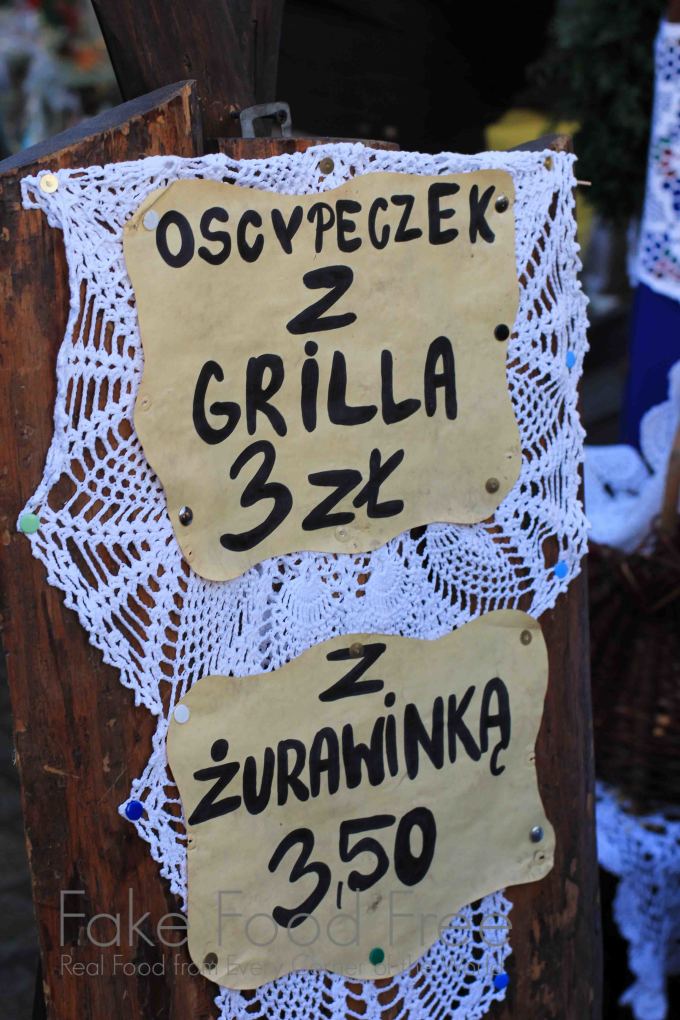 OSCYPECZEK
Z
GRiLLA
3 ZŁ
Z
ŻURAWiNKĄ
3,50
Fake Food Free
Real Food from Every Corner of the World